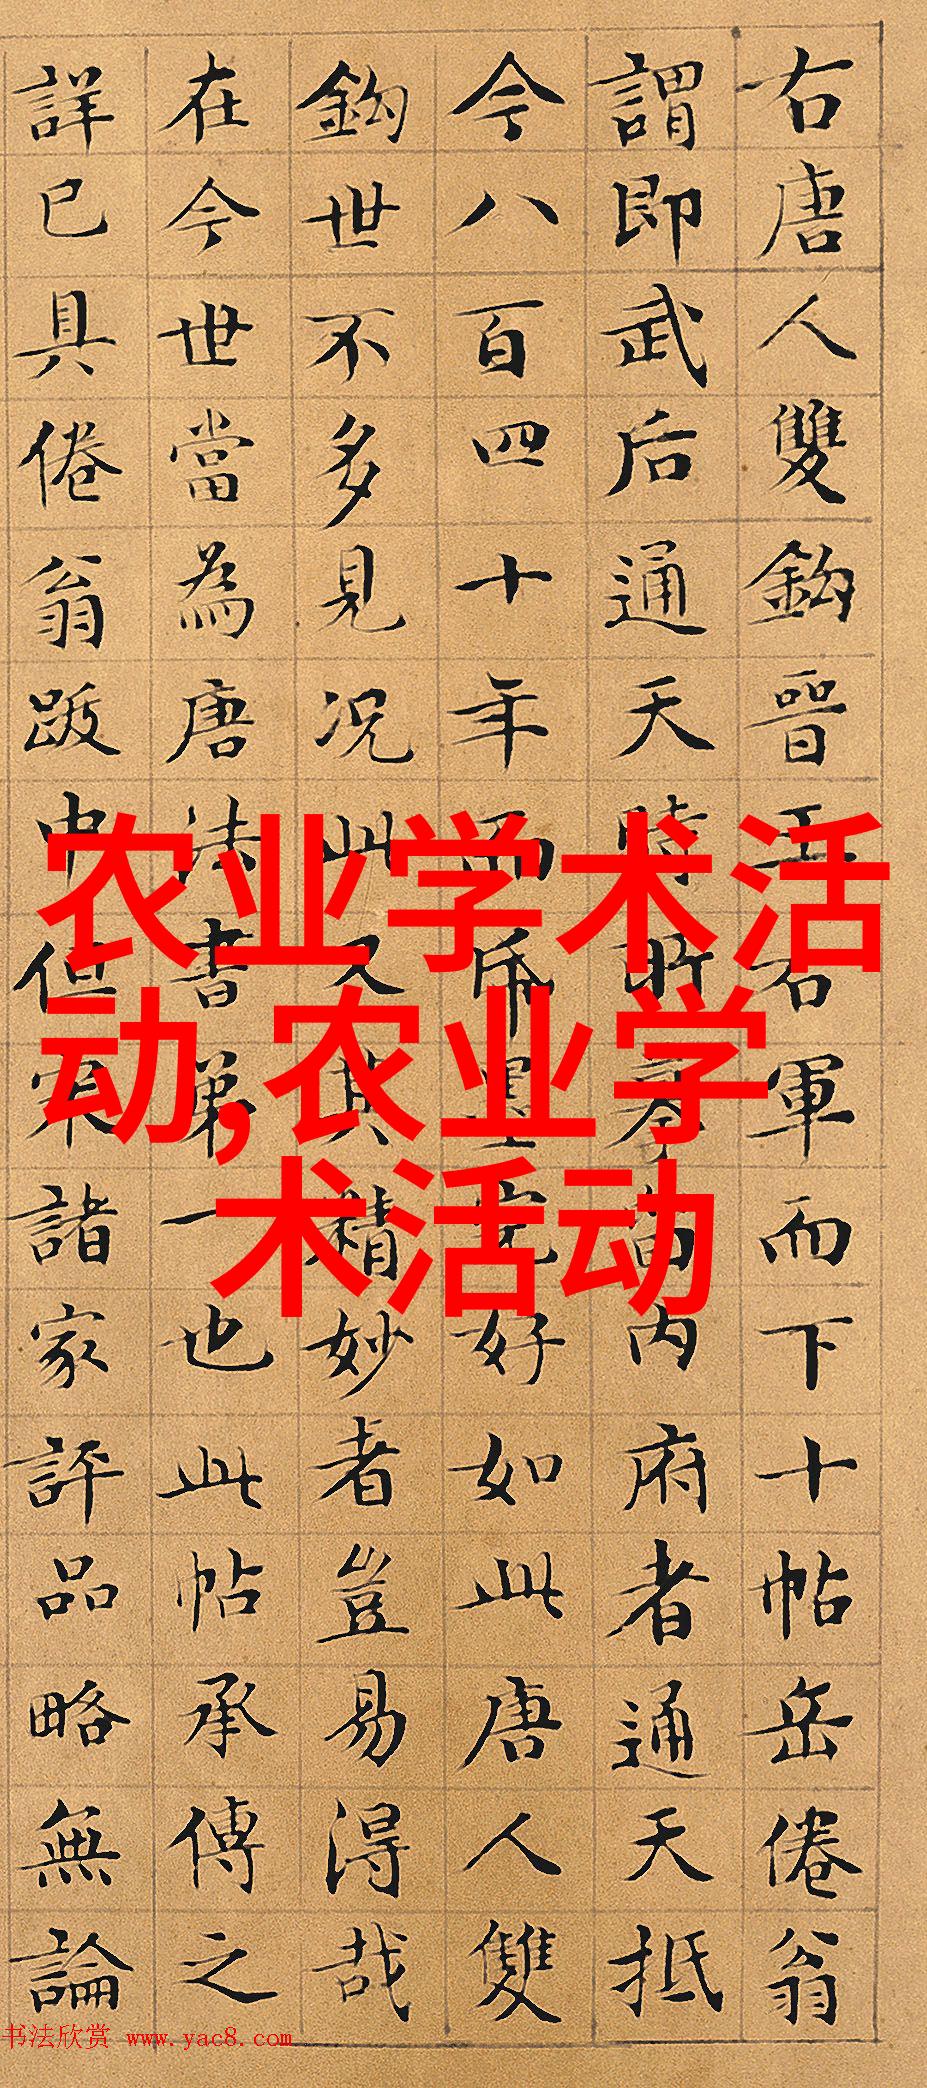 右唐人雙鈎晉王右軍而下十帖岳倦翁
謂即武后通天時所摹留内府者通天抵
今八百四十年而帋墨完好如此唐人雙
鈎世不多見况此又其精妙者豈易得哉
在今世當為唐法書弟一也此帖承傳之
詳已具倦翁跋中但宋諸家評品略無論
农业学术活
动,农业学
术活动
书法欣赏 www.yac8.com